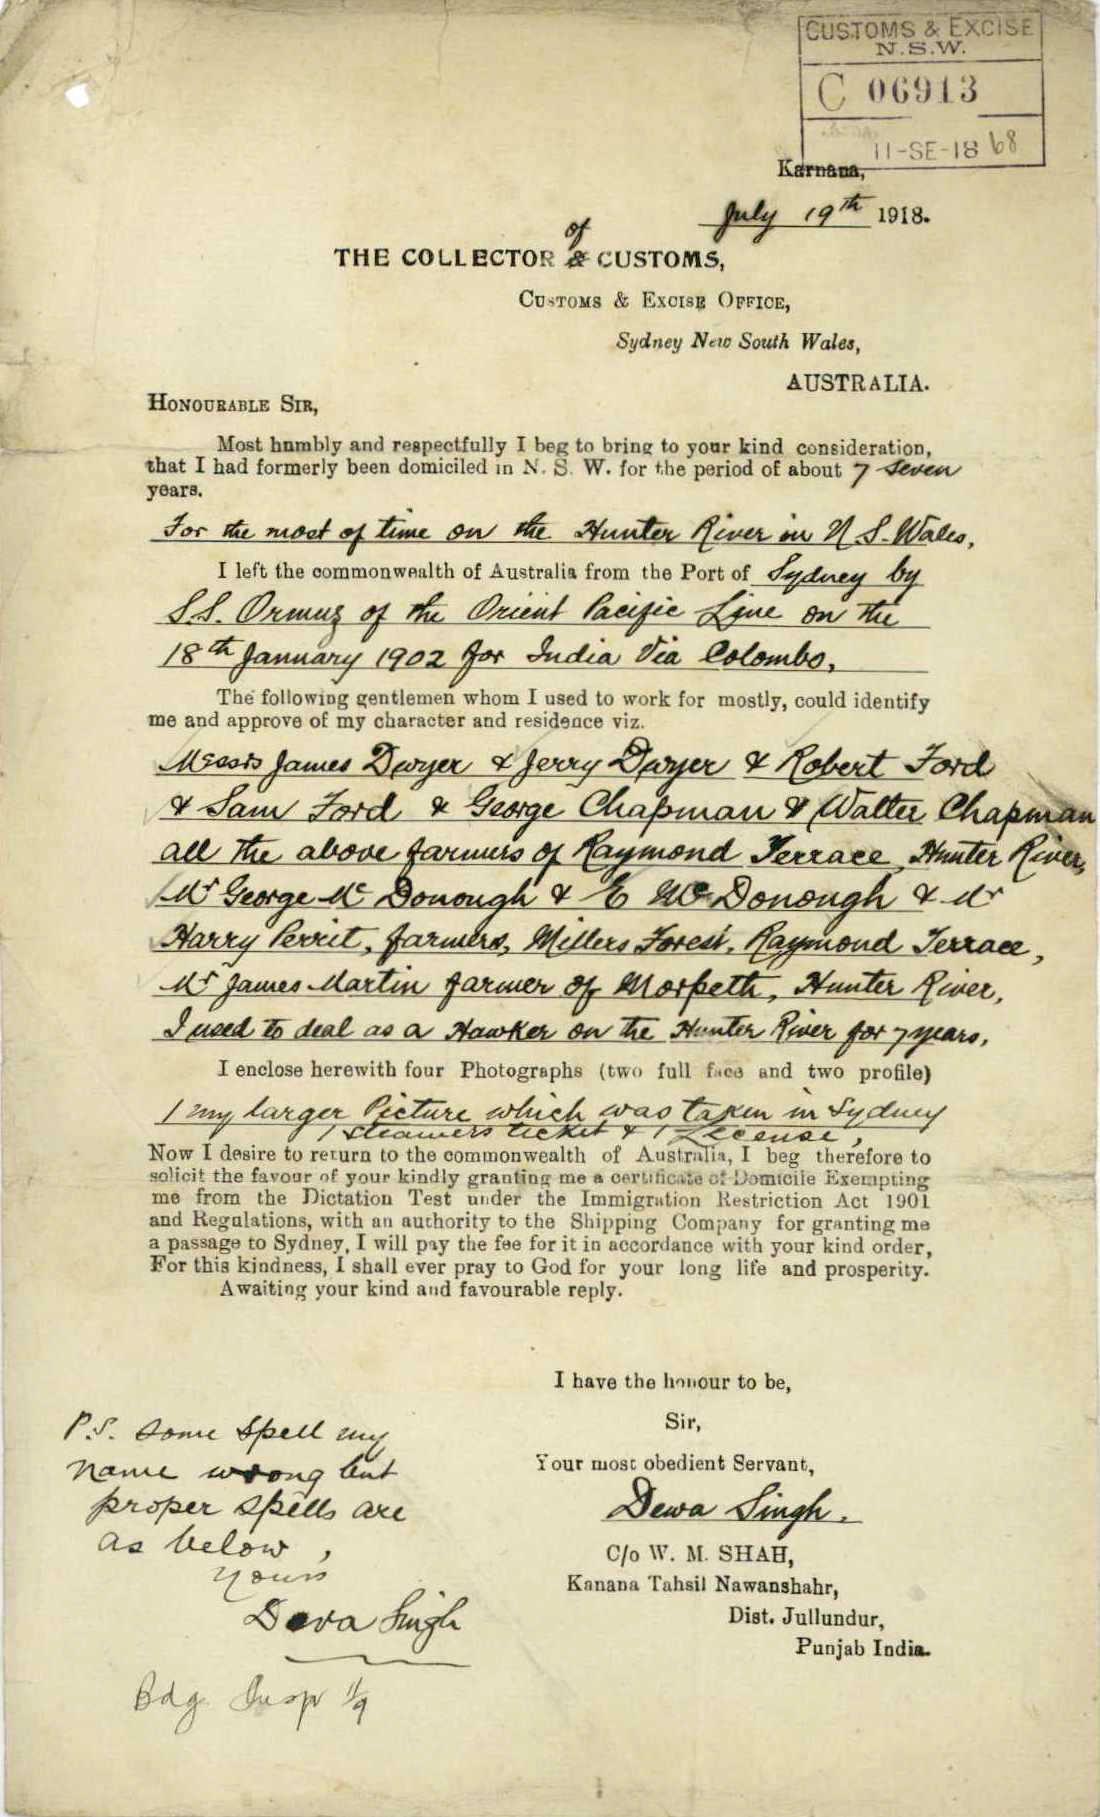 CUSTOMS & EXCISE
N.S.W.
C 06913
11-SE-18 68
Karnana,
July 19th 1918.
of
THE COLLECTOR & CUSTOMS,
CUSTOMS & EXCISE OFFICE,
Sydney New South Wales,
AUSTRALIA.
HONOURABLE SIR,
Most humbly and respectfully I beg to bring to your kind consideration,
that I had formerly been domiciled in N. S. W. for the period of about 7 seven
years.
For the most of time on the Hunter River in N. S. Wales,
I left the commonwealth of Australia from the Port of Sydney by
S.S. Ormuz of the Orient Pacific Line on the
18th January 1902 for India Via Colombo,
The following gentlemen whom I used to work for mostly, could identify
me and approve of my character and residence viz.
Messrs James Dwyer & Jerry Dwyer & Robert Ford
& Sam Ford & George Chapman & Walter Chapman
all the above farmers of Raymond Terrace, Hunter River,
Mr George Mc Donough & E Mc Donough & Mr
Harry Perrit, farmers, Millers Forest, Raymond Terrace,
Mr James Martin farmer of Morpeth, Hunter River,
I used to deal as a Hawker on the Hunter River for 7 years,
I enclose herewith four Photographs (two full face and two profile)
1 my larger Picture which was taken in Sydney
1 steamers ticket & 1 License,
Now I desire to return to the commonwealth of Australia, I beg therefore to
solicit the favour of your kindly granting me a certificate of Domicile Exempting
me from the Dictation Test under the Immigration Restriction Act 1901
and Regulations, with an authority to the Shipping Company for granting me
a passage to Sydney, I will pay the fee for it in accordance with your kind order,
For this kindness, I shall ever pray to God for your long life and prosperity.
Awaiting your kind and favourable reply.
I have the honour to be,
Sir,
Your most obedient Servant,
Dewa Singh.
C/o W. M. SHAH,
Kanana Tahsil Nawanshahr,
Dist. Jullundur,
Punjab India.
P.S. some spell my
name wrong but
proper spells are
as below,
Yours
Deva Singh
Bdg Inspr 11/9